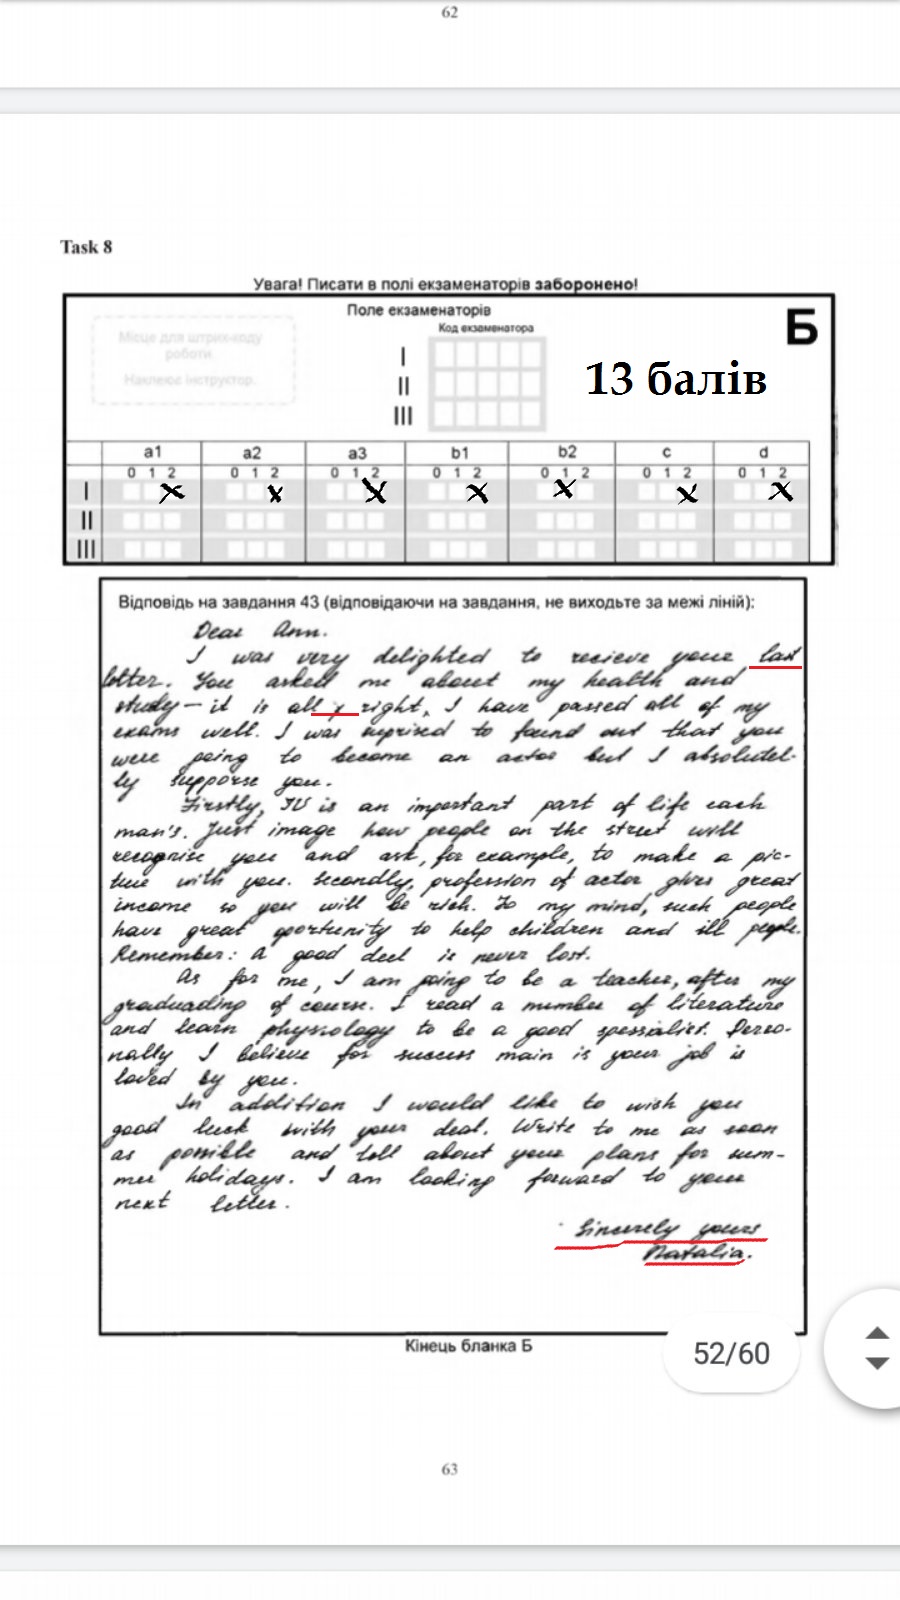 62
Task 8
Увага! Писати в полі екзаменаторів заборонено!
Поле екзаменаторів
Код екзаменатора
Б
Місце для штрих-коду
роботи
Наклеює інструктор.
I
II
III
13 балів
a1 a2 a3 b1 b2 c d
0 1 2 0 1 2 0 1 2 0 1 2 0 1 2 0 1 2 0 1 2
I
II
III
Відповідь на завдання 43 (відповідаючи на завдання, не виходьте за межі ліній):
Dear Ann.
I was very delighted to recieve your last
letter. You asked me about my health and
study – it is all right, I have passed all of my
exams well. I was suprised to found out that you
were going to become an actor but I absolutel-
ly supporse you.
Firstly, TV is an important part of life each
man's. Just image how people on the street will
recognise you and ask, for example, to make a pic-
ture with you. Secondly, profession of actor gives great
income so you will be rich. To my mind, such people
have great oportunity to help children and ill people.
Remember: A good deel is never lost.
As for me, I am going to be a teacher, after my
graduading of course. I read a number of literature
and learn physiology to be a good spessialist. Perso-
nally I believe for success main is your job is
loved by you.
In addition I would like to wish you
good luck with your deal. Write to me as soon
as possible and tell about your plans for sum-
mer holidays. I am looking forward to your
next letter.
Sincerely yours
Natalia.
Кінець бланка Б
52/60
63